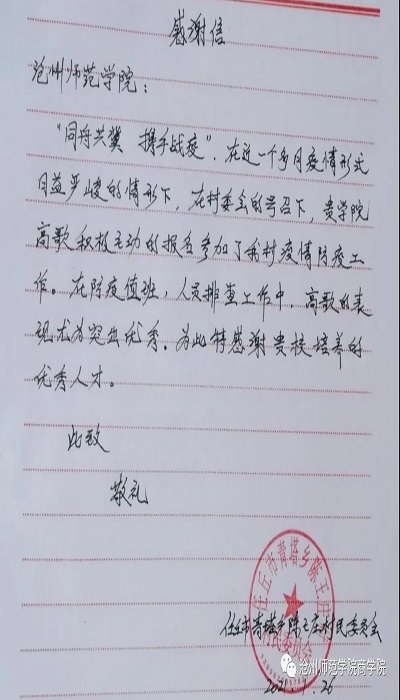 感谢信
沧州师范学院：
“同舟共冀 携手战疫”，在近一个多月疫情形式
日益严峻的情形下，在村委会的号召下，贵学院
高歌积极主动的报名参加了我村疫情防疫工
作。在防疫值班，人员排查工作中，高歌的表
现尤为突出优秀。为此特感谢贵校培养的
优秀人才。
此致
敬礼
任丘市青塔乡陈王庄村民委员会
2021.1.26
沧州师范学院商学院